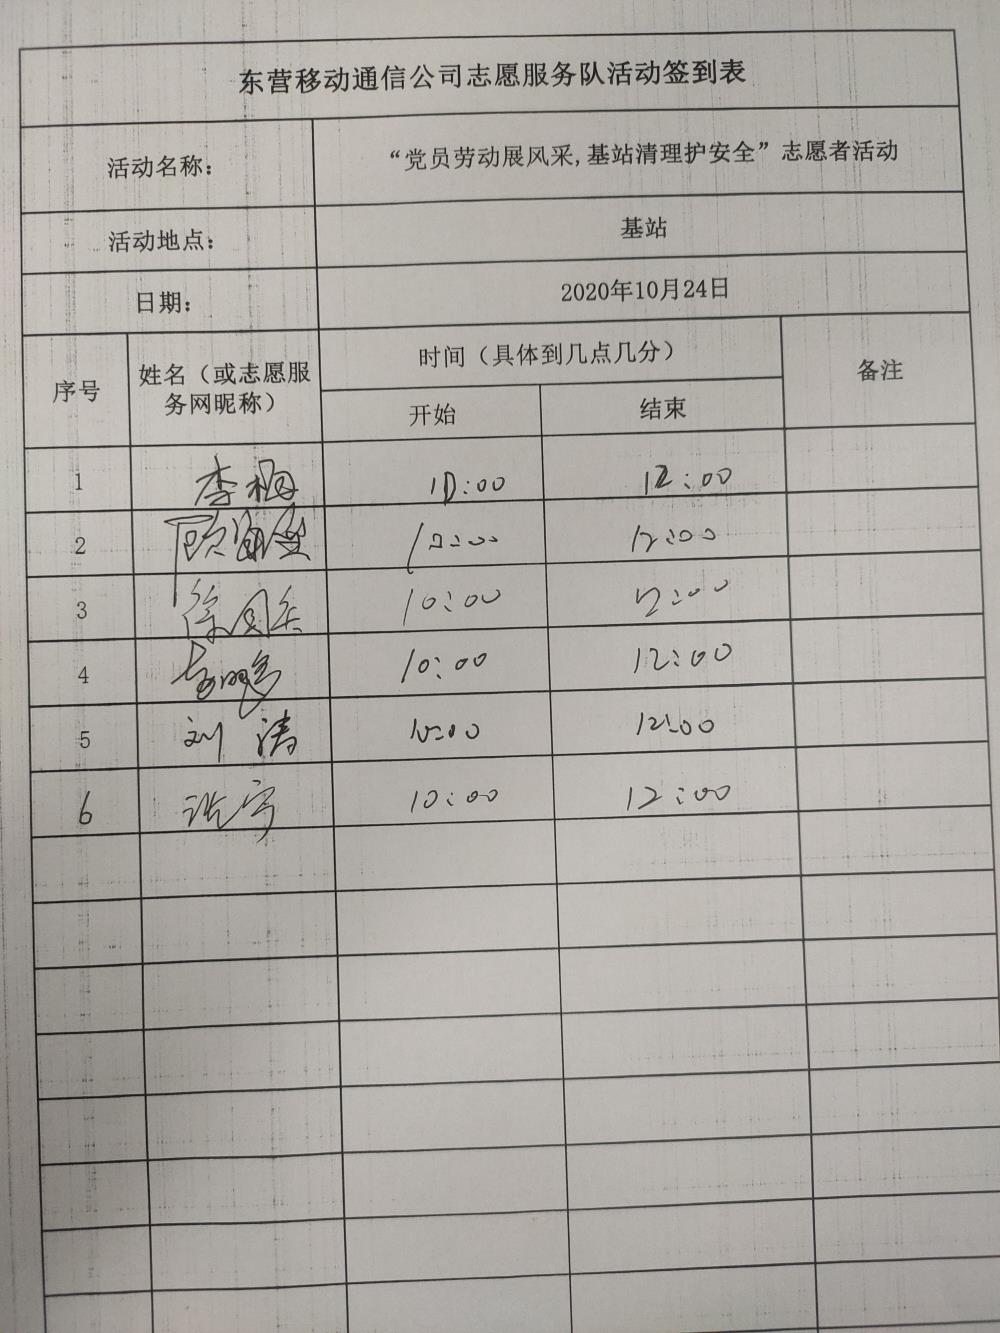 东营移动通信公司志愿服务队活动签到表
活动名称： “党员劳动展风采,基站清理护安全”志愿者活动
活动地点： 基站
日期： 2020年10月24日
序号 姓名（或志愿服务网昵称） 时间（具体到几点几分） 备注
开始 结束
1 李 10:00 12:00
2 顾 10:00 12:00
3 徐 10:00 12:00
4 10:00 12:00
5 刘涛 10:00 12:00
6 张宁 10:00 12:00